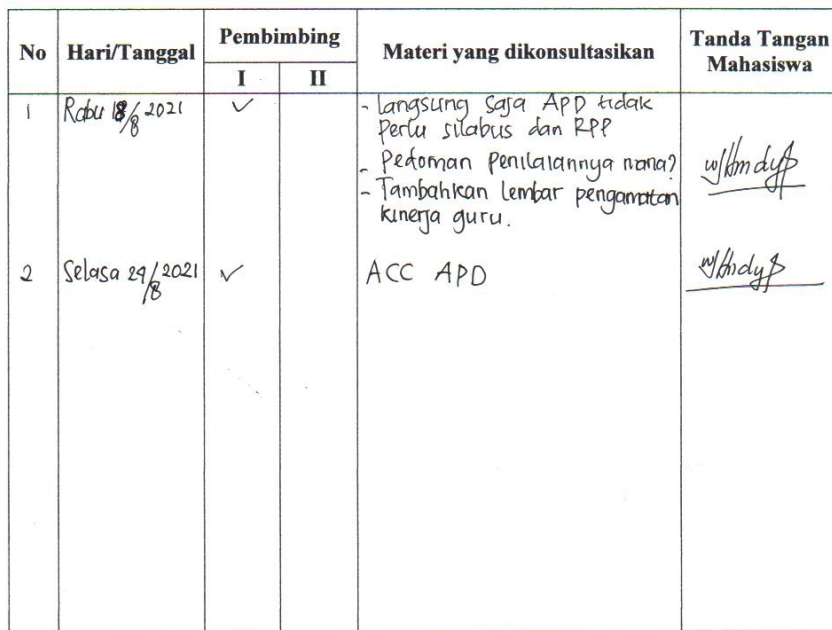 No Hari/Tanggal Pembimbing Materi yang dikonsultasikan Tanda Tangan Mahasiswa
I II
1 Rabu 18/8 2021 ✓ - Langsung saja APD tidak
perlu silabus dan RPP
- Pedoman penilaiannya mana?
- Tambahkan lembar pengamatan
kinerja guru.
2 Selasa 24/8 2021 ✓ ACC APD